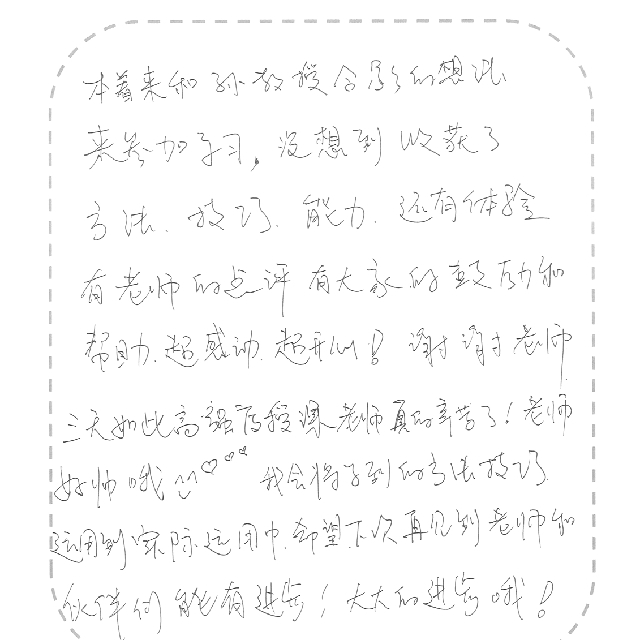 本着来和孙教授合影的想法
来参加学习，没想到收获了
方法、技巧、能力、还有体验
有老师的点评有大家的鼓励和
帮助、超感动、超开心！谢谢老师
三天如此高强度授课老师真的辛苦了！老师
好帅哦 我会将学到的方法技巧
运用到实际运用中、希望下次再见到老师和
伙伴们能有进步！大大的进步哦！